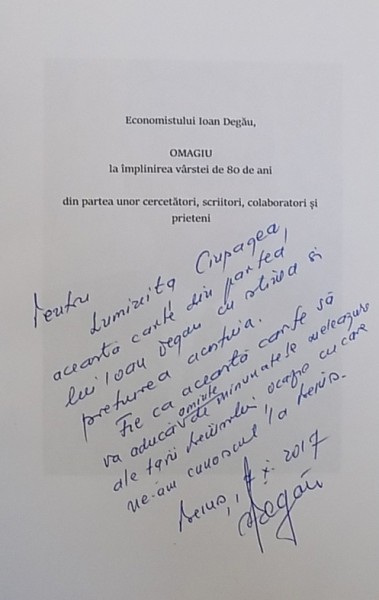 Economistului Ioan Degău,
OMAGIU
la împlinirea vârstei de 80 de ani
din partea unor cercetători, scriitori, colaboratori și
prieteni
Pentru
Luminița Ciupagea,
această carte din partea
lui Ioan Degău cu stima și
prețuirea acestuia.
Fie ca această carte să
va aducă aminte de minunatele meleaguri
ale țării Beiușului, ocazie cu care
ne-am cunoscut la Beiuș.
Beiuș, X. 2017
Degău